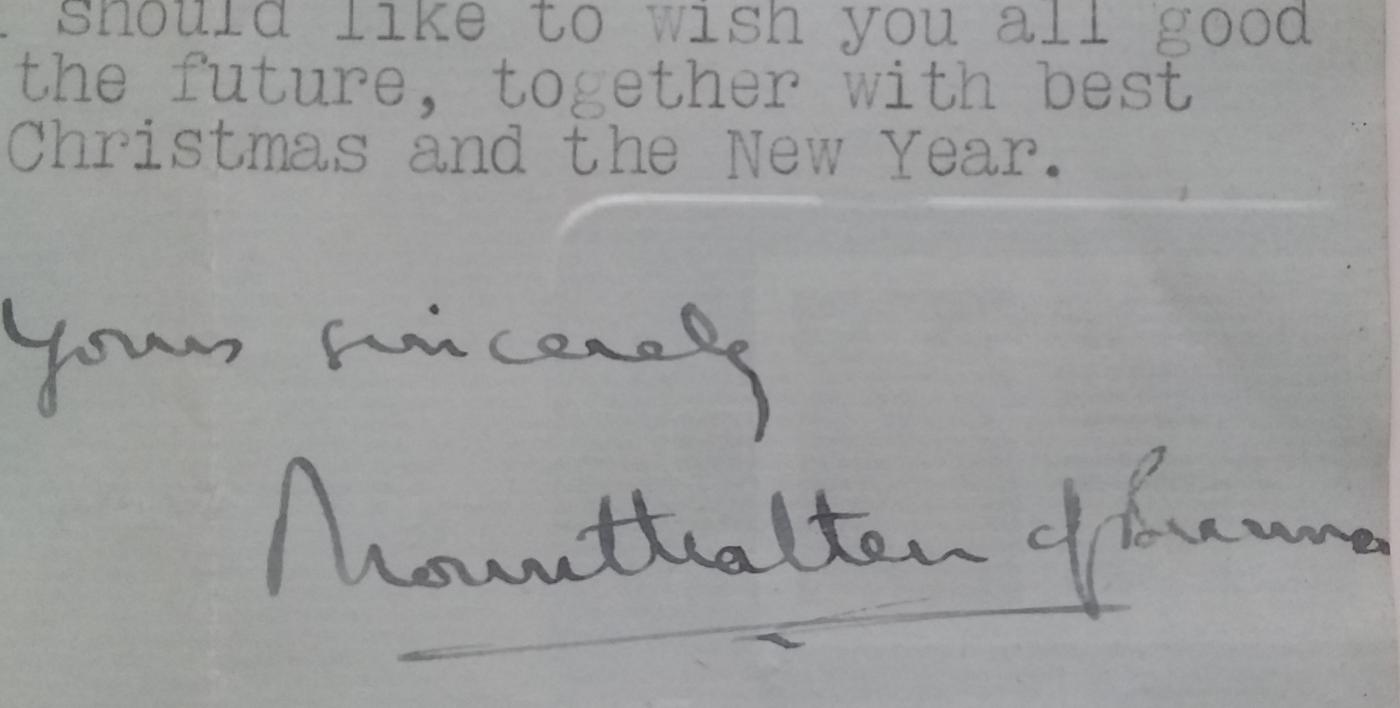 should like to wish you all good
the future, together with best
Christmas and the New Year.
Yours sincerely
Mountbatten of Burma